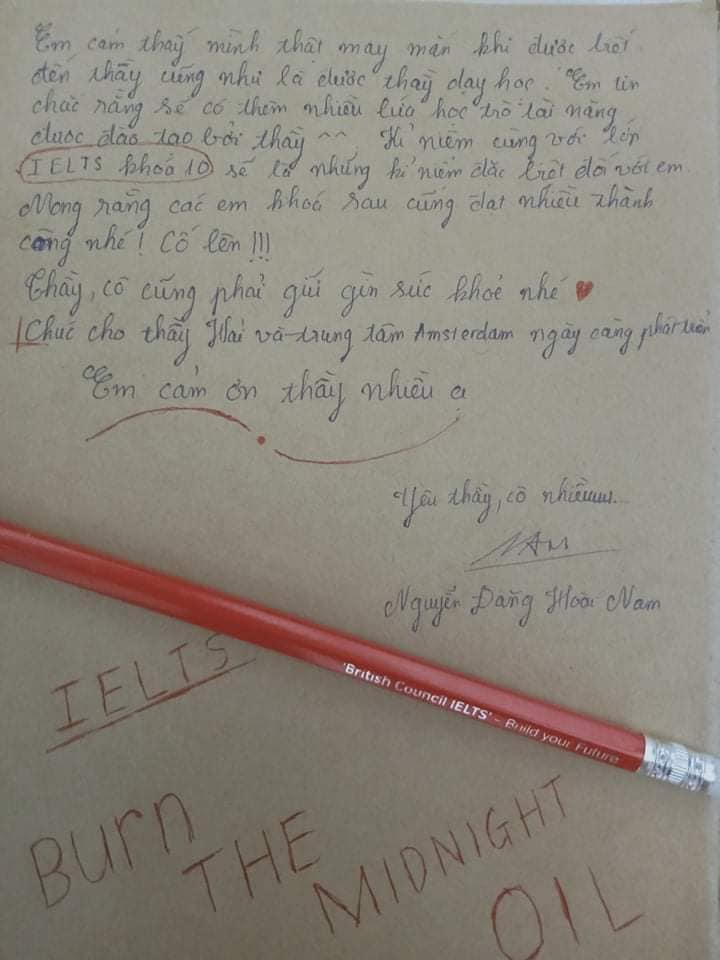 Em cảm thấy mình thật may mắn khi được biết
đến thầy cũng như là được thầy dạy học. Em tin
chắc rằng sẽ có thêm nhiều lứa học trò tài năng
được đào tạo bởi thầy ^^. Kỉ niệm cùng với lớp
IELTS khoá 10 sẽ là những kỉ niệm đặc biệt đối với em.
Mong rằng các em khoá sau cũng đạt nhiều thành
công nhé! Cố lên !!!
Thầy, cô cũng phải giữ gìn sức khoẻ nhé ♥
Chúc cho thầy Hải và trung tâm Amsterdam ngày càng phát triển
Em cảm ơn thầy nhiều ạ
Yêu thầy, cô nhiềuuuu...
NAM
Nguyễn Đăng Hoài Nam
'British Council IELTS' - Build your Future
IELTS
BURN
THE
MIDNIGHT
OIL